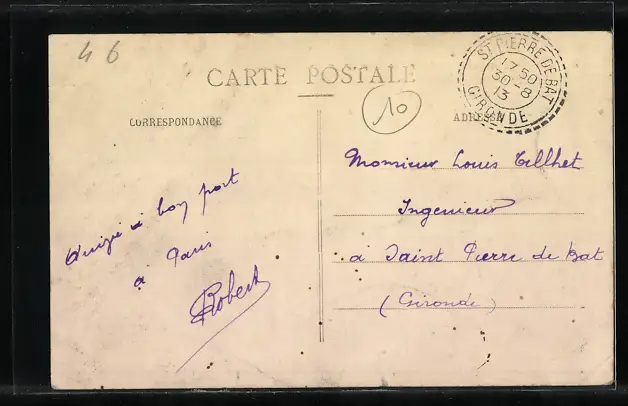 46
CARTE POSTALE
10
ST PIERRE DE BAT
1750
30-8
13
GIRONDE
CORRESPONDANCE
ADRESSE
Arrivé à bon port
à Paris
Robert
Monsieur Louis
Ingenieur
à Saint Pierre de Bat
(Gironde)